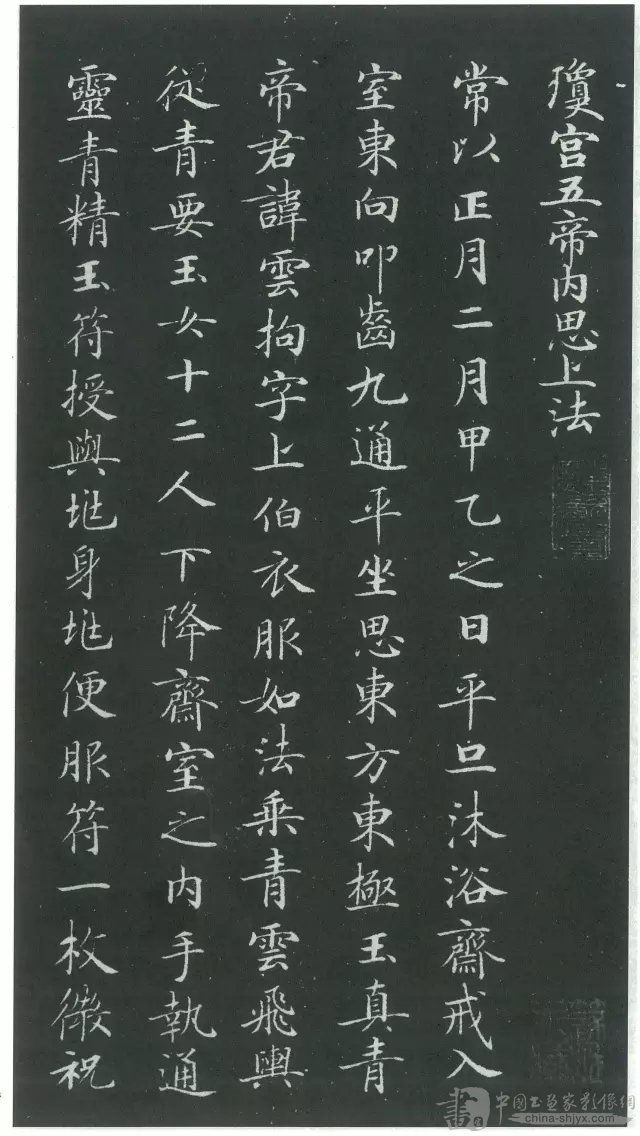 瓊宫五帝内思上法
常以正月二月甲乙之日平旦沐浴齋戒入
室東向叩齒九通平坐思東方東極玉真青
帝君諱雲拘字上伯衣服如法乘青雲飛輿
從青要玉女十二人下降齋室之内手執通
靈青精玉符授與玼身玼便服符一枚微祝
中國書畫家影像網
china-shjyx.com